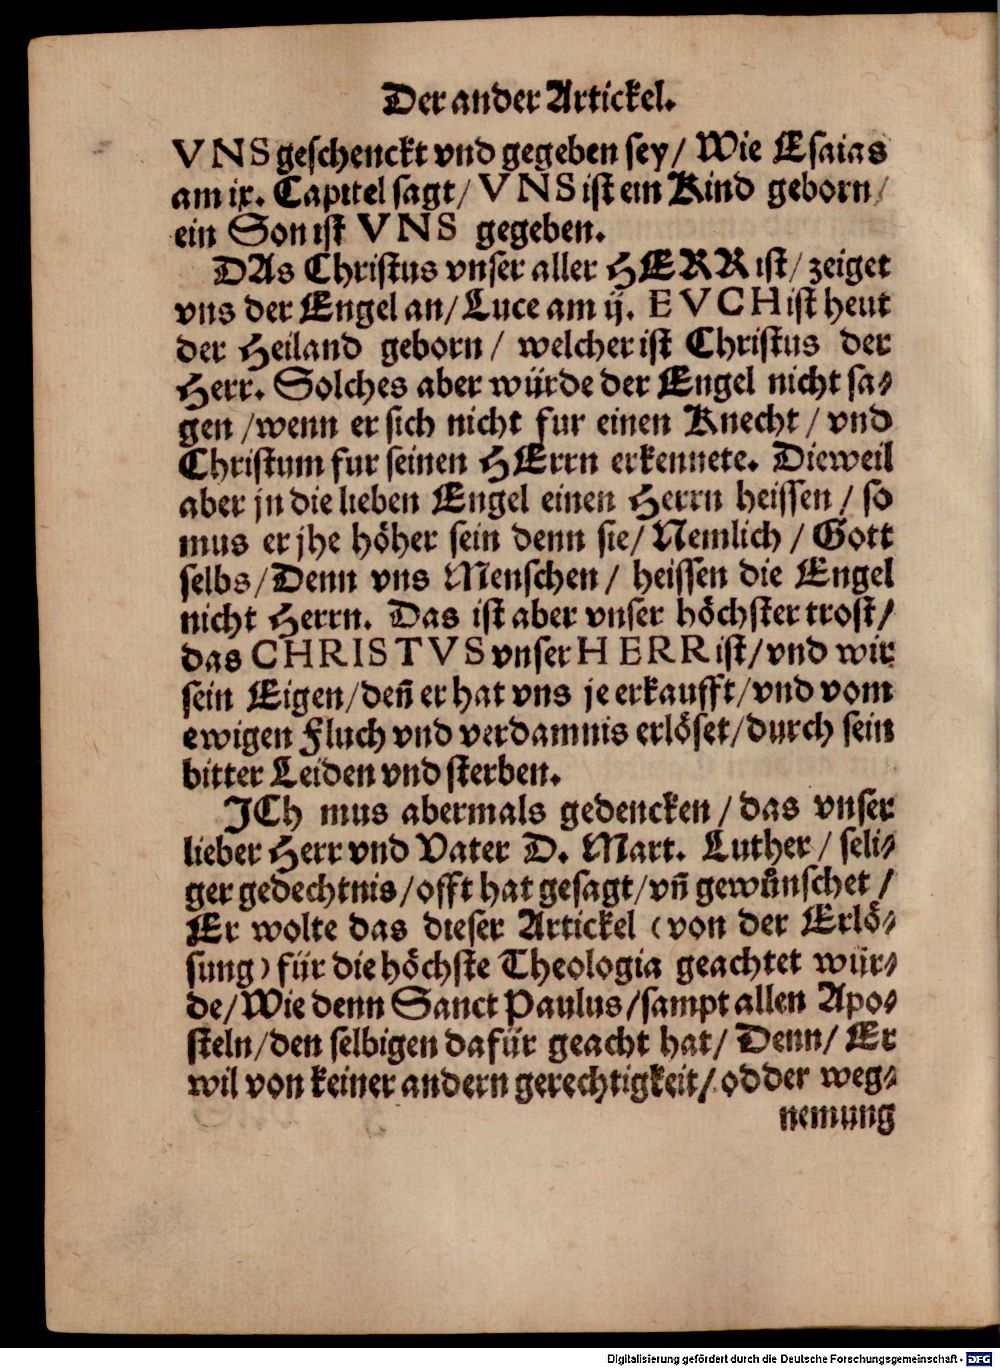 Der ander Artickel.
VNS geschenckt vnd gegeben sey/ Wie Esaias
am ix. Capittel sagt/ VNS ist ein Kind geborn/
ein Son ist VNS gegeben.
DAs Christus vnser aller HERR ist/ zeiget
vns der Engel an/ Luce am ij. EVCH ist heut
der Heiland geborn/ welcher ist Christus der
Herr. Solches aber würde der Engel nicht sa⸗
gen/ wenn er sich nicht fur einen Knecht/ vnd
Christum fur seinen HErrn erkennete. Dieweil
aber jn die lieben Engel einen Herrn heissen/ so
mus er jhe höher sein denn sie/ Nemlich/ Gott
selbs/ Denn vns Menschen/ heissen die Engel
nicht Herrn. Das ist aber vnser höchster trost/
das CHRISTVS vnser HERR ist/ vnd wir
sein Eigen/ deñ er hat vns je erkaufft/ vnd vom
ewigen Fluch vnd verdamnis erlöset/ durch sein
bitter Leiden vnd sterben.
JCh mus abermals gedencken/ das vnser
lieber Herr vnd Vater D. Mart. Luther/ seli⸗
ger gedechtnis/ offt hat gesagt/ vñ gewünschet/
Er wolte das dieser Artickel (von der Erlö⸗
sung) für die höchste Theologia geachtet wür⸗
de/ Wie denn Sanct Paulus/ sampt allen Apo⸗
steln/ den selbigen dafür geacht hat/ Denn/ Er
wil von keiner andern gerechtigkeit/ odder weg⸗
nemung
Digitalisierung gefördert durch die Deutsche Forschungsgemeinschaft - DFG